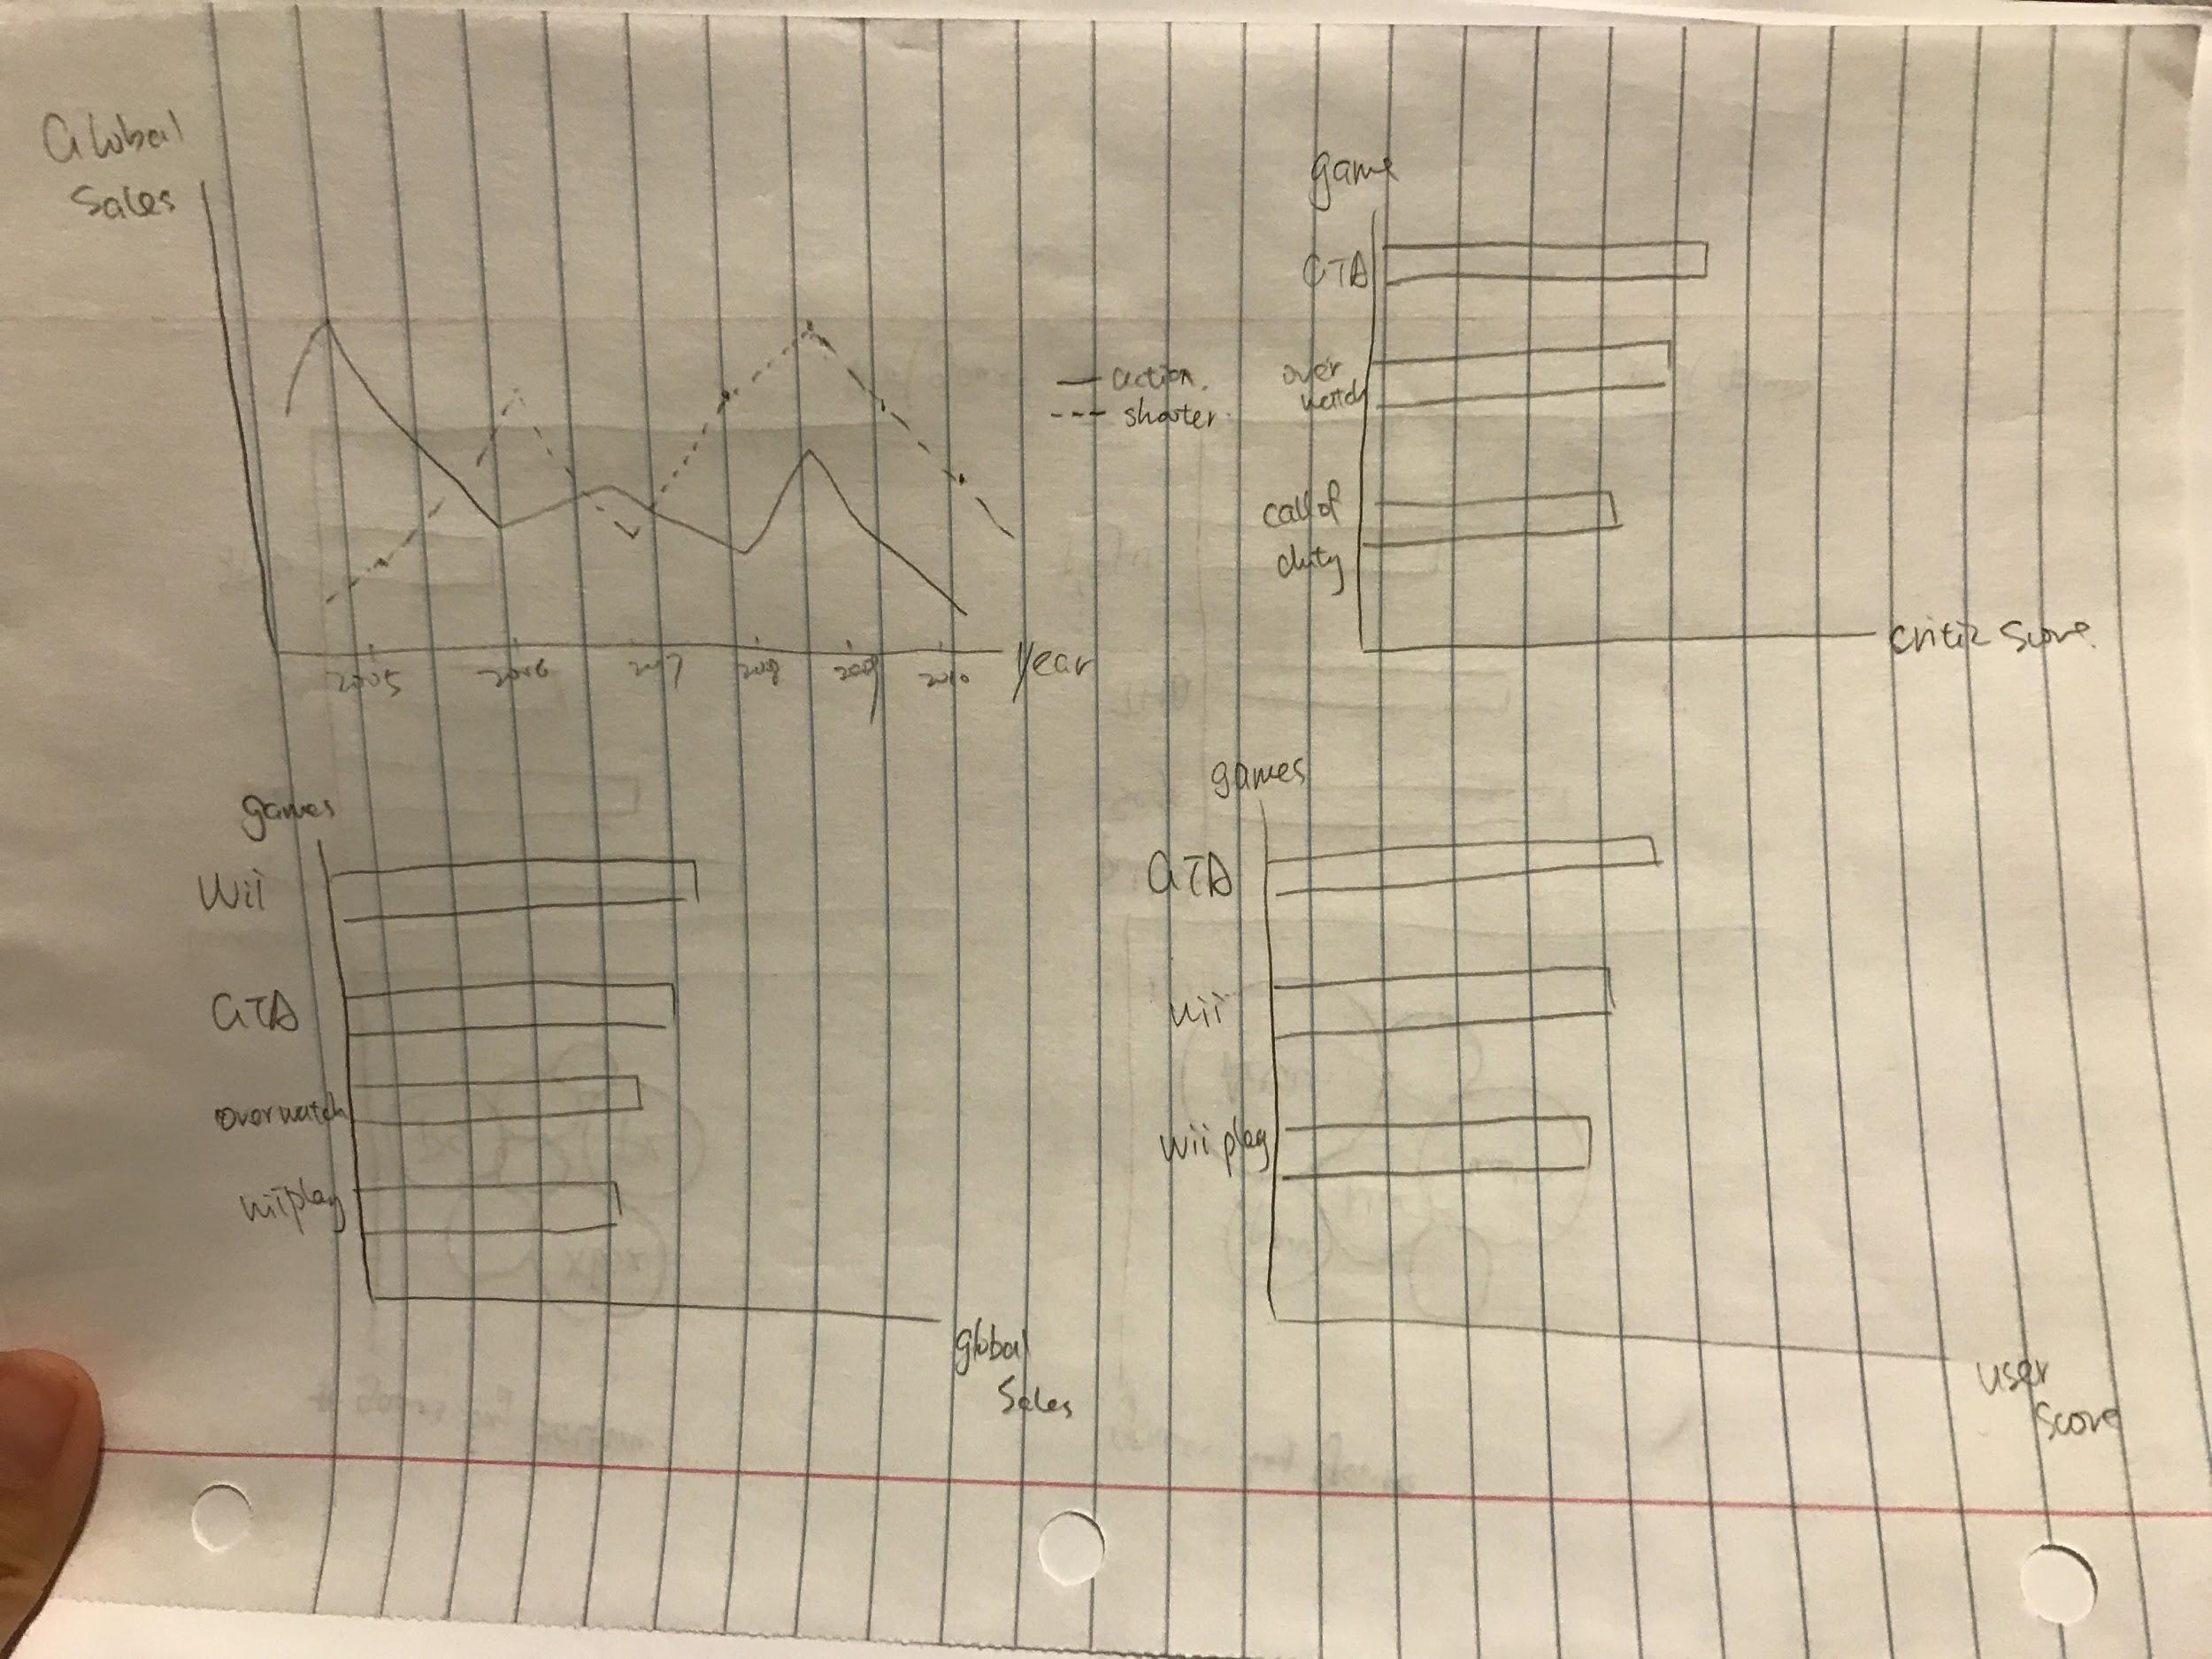 Global
Sales
action.
shooter.
2005 2006 2007 2008 2009 2010 Year
game
GTA
over
watch
call of
duty
critic score.
games
Wii
GTA
overwatch
wii play
global
Sales
games
GTA
wii
wii play
user
score